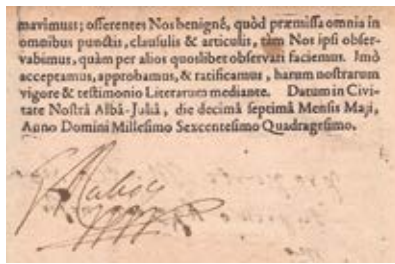 mavimus; offerentes Nos benignè, quòd præmissa omnia in
omnibus punctis, clausulis & articulis, tàm Nos ipsi obser-
vabimus, quàm per alios quoslibet observari faciemus. Imò
acceptamus, approbamus, & ratificamus, harum nostrarum
vigore & testimonio Literarum mediante. Datum in Civi-
tate Nostrâ Albâ-Juliâ, die decimâ septimâ Mensis Maji,
Anno Domini Millesimo Sexcentesimo Quadragesimo.